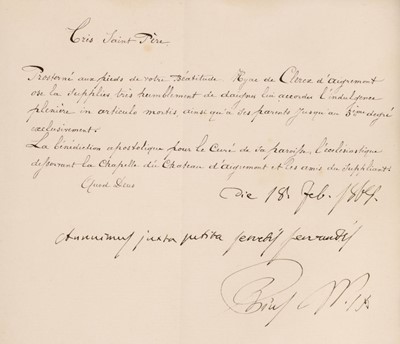 Très Saint Père
Prosterné aux pieds de votre Béatitude Hyne de Clerex d'aigremont
ose la supplier très humblement de daigner lui accorder l'indulgence
plénière in articulo mortis, ainsi qu'à ses parents jusqu'au 3ème degré
exclusivement.
La bénédiction apostolique pour le Curé de sa paroisse, l'ecclésiastique
desservant la Chapelle du Chateau d'aigremont et les amis du suppliant.
Quod Deus
Die 18 Feb. 1864.
Annuimus juxta petita servatis servandis
Pius P. IX